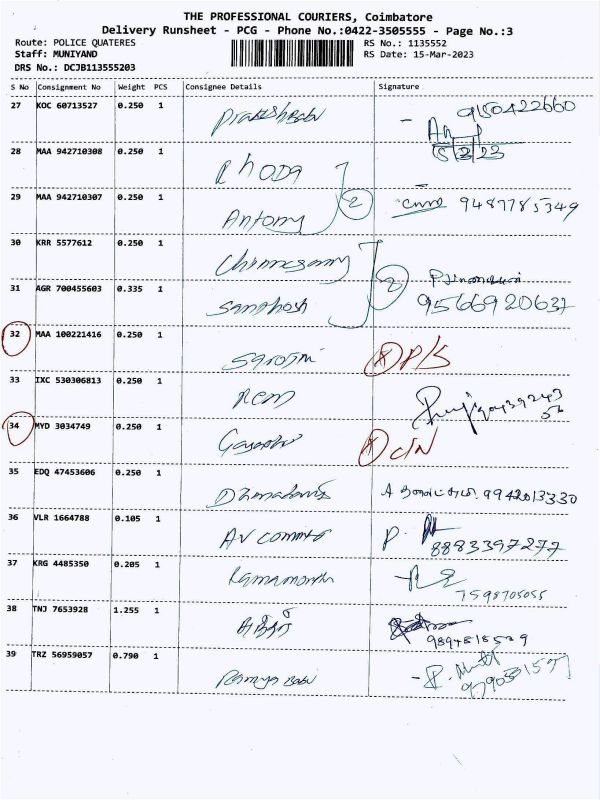 THE PROFESSIONAL COURIERS, Coimbatore
Delivery Runsheet - PCG - Phone No.:0422-3505555 - Page No.:3
Route: POLICE QUATERES RS No.: 1135552
Staff: MUNIYAND RS Date: 15-Mar-2023
DRS No.: DCJB113555203
S No Consignment No Weight PCS Consignee Details Signature
27 KOC 60713527 0.250 1 9150422660
28 MAA 942710308 0.250 1 Rhoda
29 MAA 942710307 0.250 1 Antony 2 9487785349
30 KRR 5577612 0.250 1 Chinnasamy
31 AGR 700455603 0.335 1 Santhosh 2 9566920637
32 MAA 100221416 0.250 1 Sarojini P/S
33 IXC 530306813 0.250 1
34 MYD 3034749 0.250 1 C/N
35 EDQ 47453606 0.250 1 9942013330
36 VLR 1664788 0.105 1 AV P. 8883397277
37 KRG 4485350 0.205 1 Ramamoorth 7598705055
38 TNJ 7653928 1.255 1
39 TRZ 56959057 0.790 1 Ramya Babu